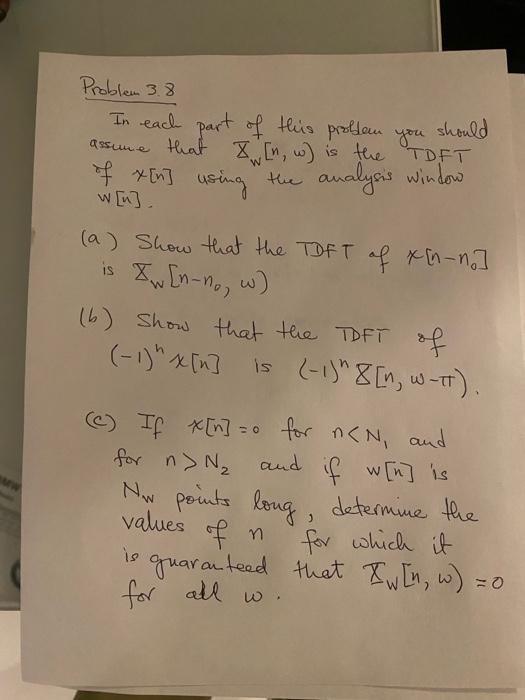 Problem 3.8
In each part of this problem you should
assume that X_w[n, ω) is the TDFT
of x[n] using the analysis window
w[n].
(a) Show that the TDFT of x[n-n₀]
is X_w[n-n₀, ω)
(b) Show that the TDFT of
(-1)ⁿ x[n] is (-1)ⁿ X[n, ω-π).
(c) If x[n]=0 for n<N₁ and
for n>N₂ and if w[n] is
N_w points long, determine the
values of n for which it
is guaranteed that X_w[n, ω) =0
for all ω.